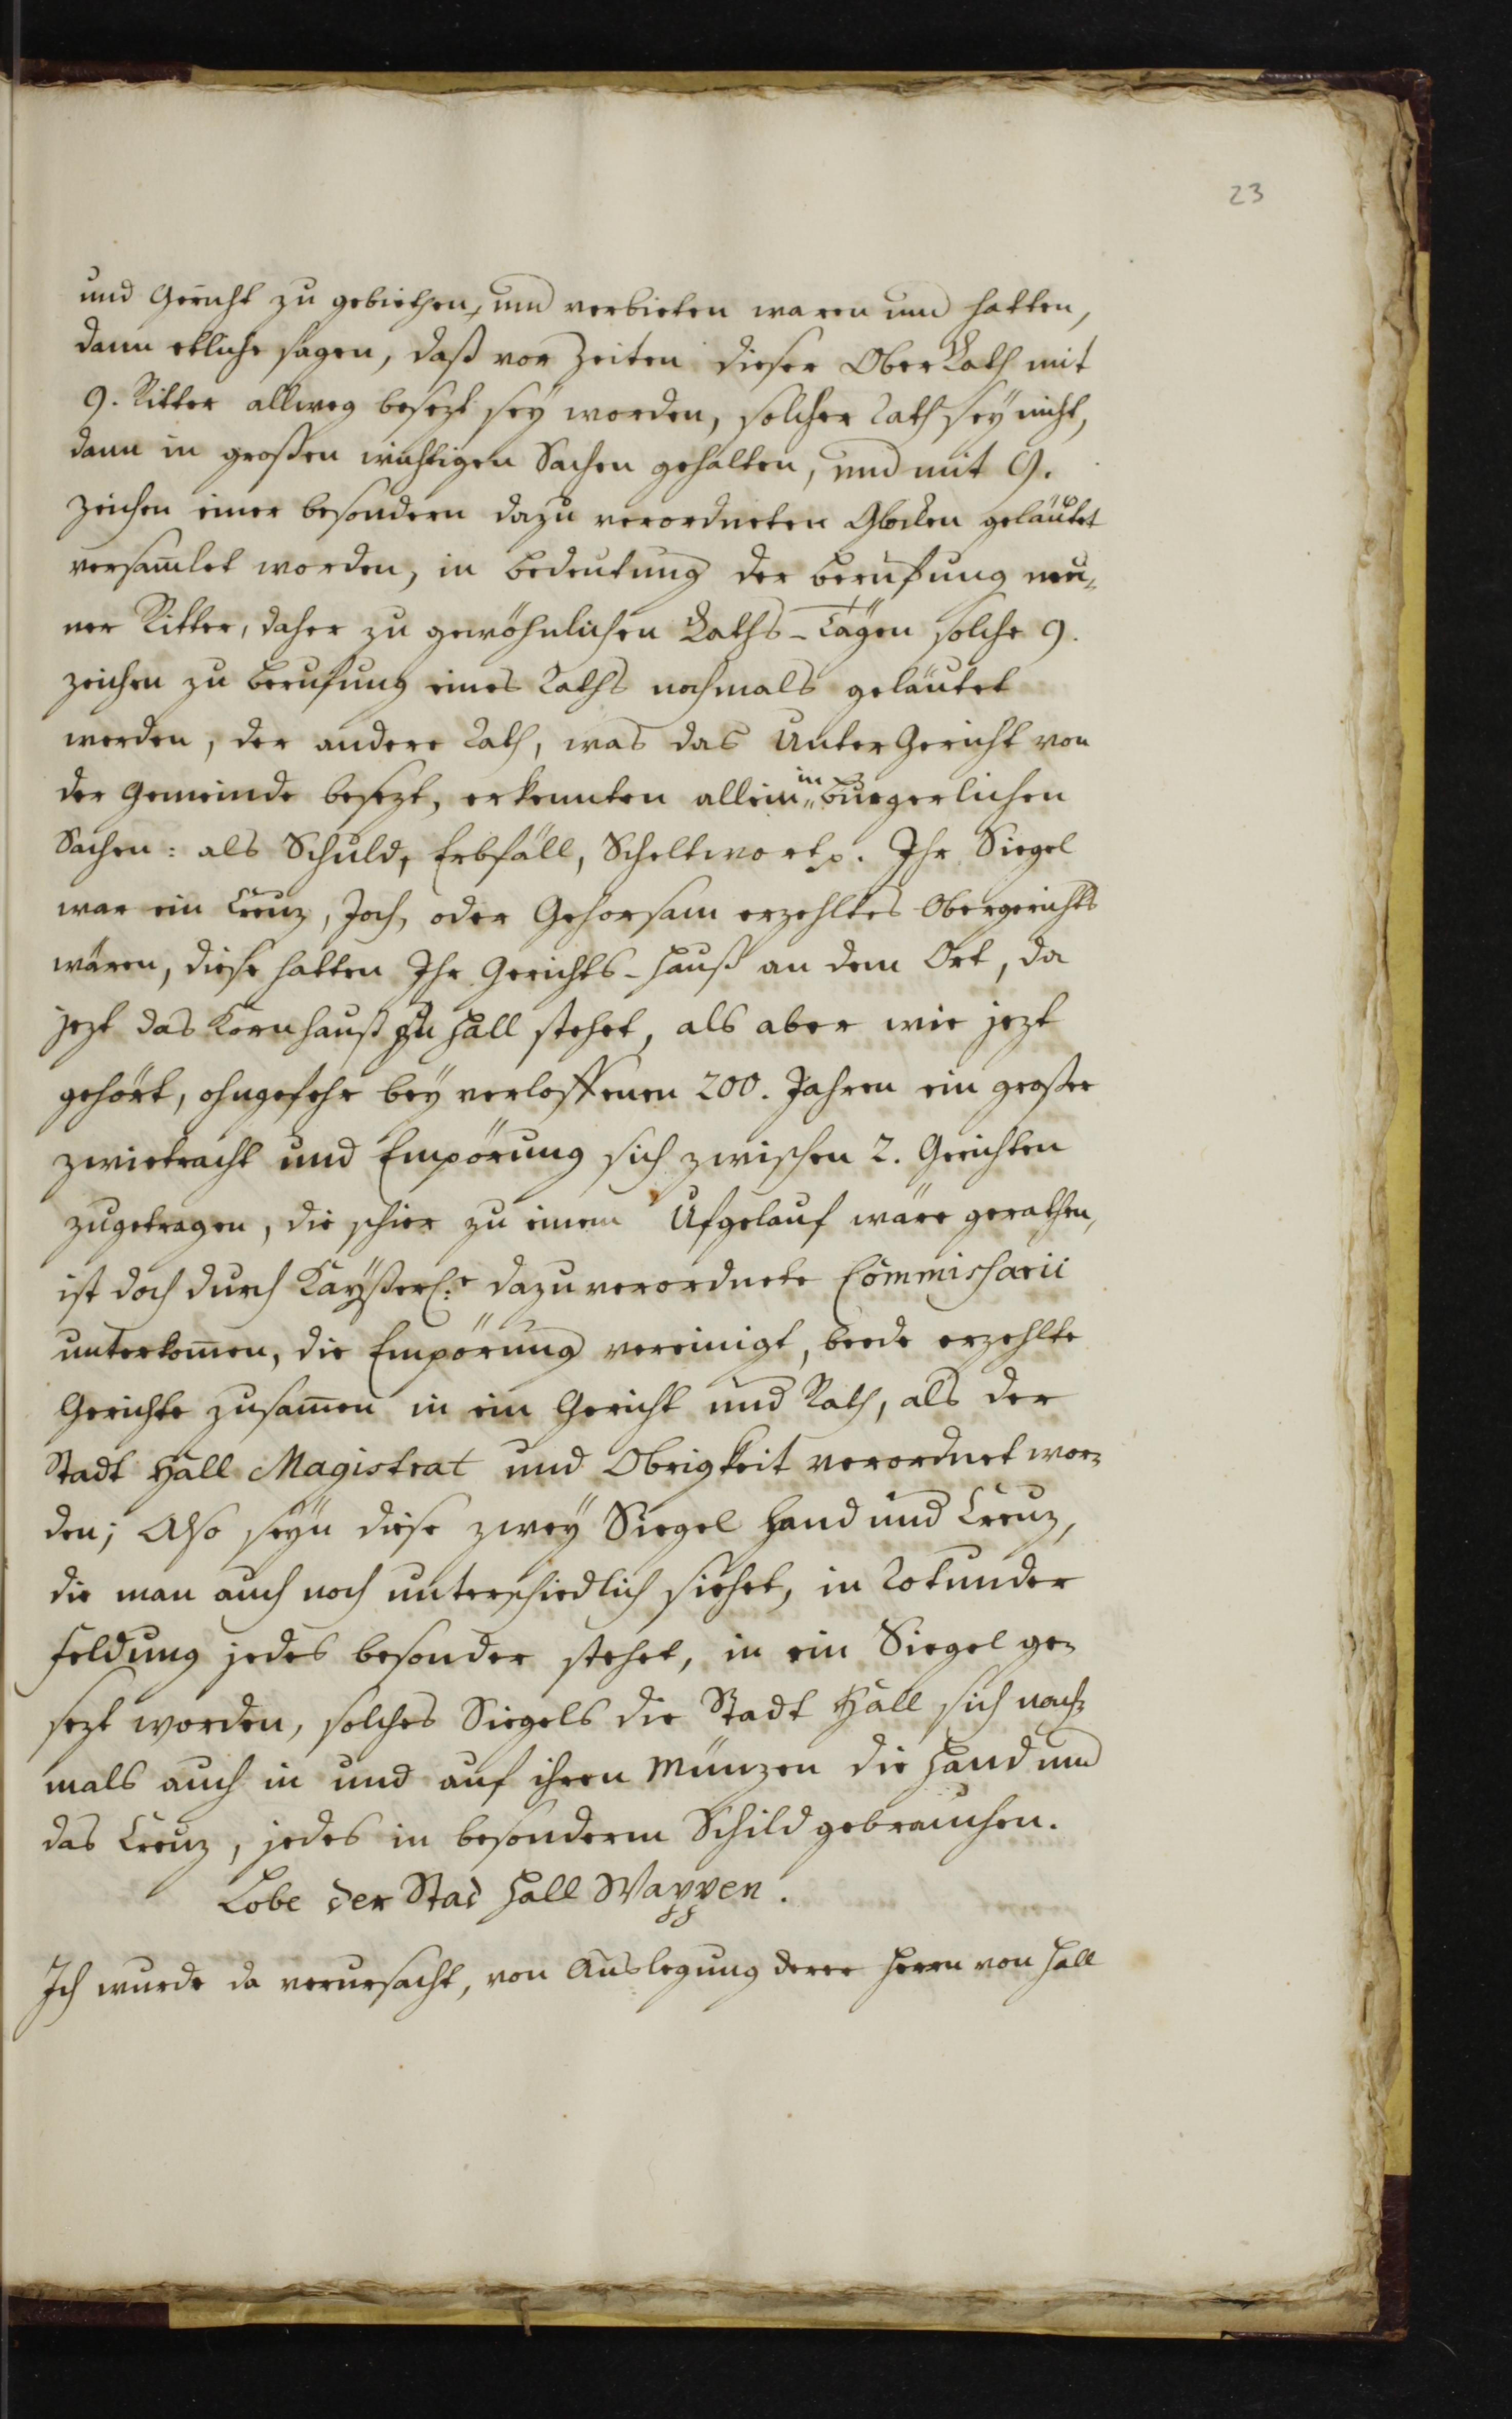 23
und Gericht zu gebiethen, und verbieten waren und hatten,
dann etliche sagen, daß vor Zeiten dieser Ober Rath mit
9. Ritter allweg besezt seÿ worden, solcher Rath seÿ nicht,
dann in großen wichtigen Sachen gehalten, und mit 9.
Zeichen einer besondern dazu verordneten Glocken geläutet
versam̅let worden, in bedeutung der beruffung neu„
ner Ritter, daher zu gewöhnlichen Raths-Tägen solche 9.
zeichen zu beruffung eines Raths nochmals geläutet
werden, der andere Rath, was das Unter Gericht von
der Gemeinde besezt, erkennten allein in burgerlichen
Sachen: als Schuld, Erbfäll, Scheltwort p. Ihr Siegel
war ein Creuz, Joch, oder Gehorsam erzehltes Obergerichts
wären, diese hatten Ihr Gerichts-Hauß an dem Ort, da
jezt das Kornhauß zu Hall stehet, als aber wie jezt
gehört, ohngefehr beÿ verloffenen 200. Jahren ein großer
zwietracht und Empörung sich zwischen 2. Gerichten
zugetragen, die schier zu einem Ufgelauf wäre gerathen,
ist doch durch Kaÿßerl:r dazu verordnete Commissarii
unterkom̅en, die Empörung vereinigt, beede erzehlte
Gerichte zusam̅en in ein Gericht und Rath, als der
Stadt Hall Magistrat und Obrigkeit verordnet wor=
den; Also seÿn diese zweÿ Siegel Hand und Creuz,
die man auch noch unterschiedlich siehet, in Rotunder
Feldung jedes besonder stehet, in ein Siegel ge=
sezt worden, solches Siegels die Stadt Hall sich noch=
mals auch in und auf ihren Münzen die Hand und
das Creuz, jedes in besonderm Schild gebrauchen.
Lobe der Stad Hall Wappen.
Ich wurde da verursacht, von Auslegung derer Herrn von Hall